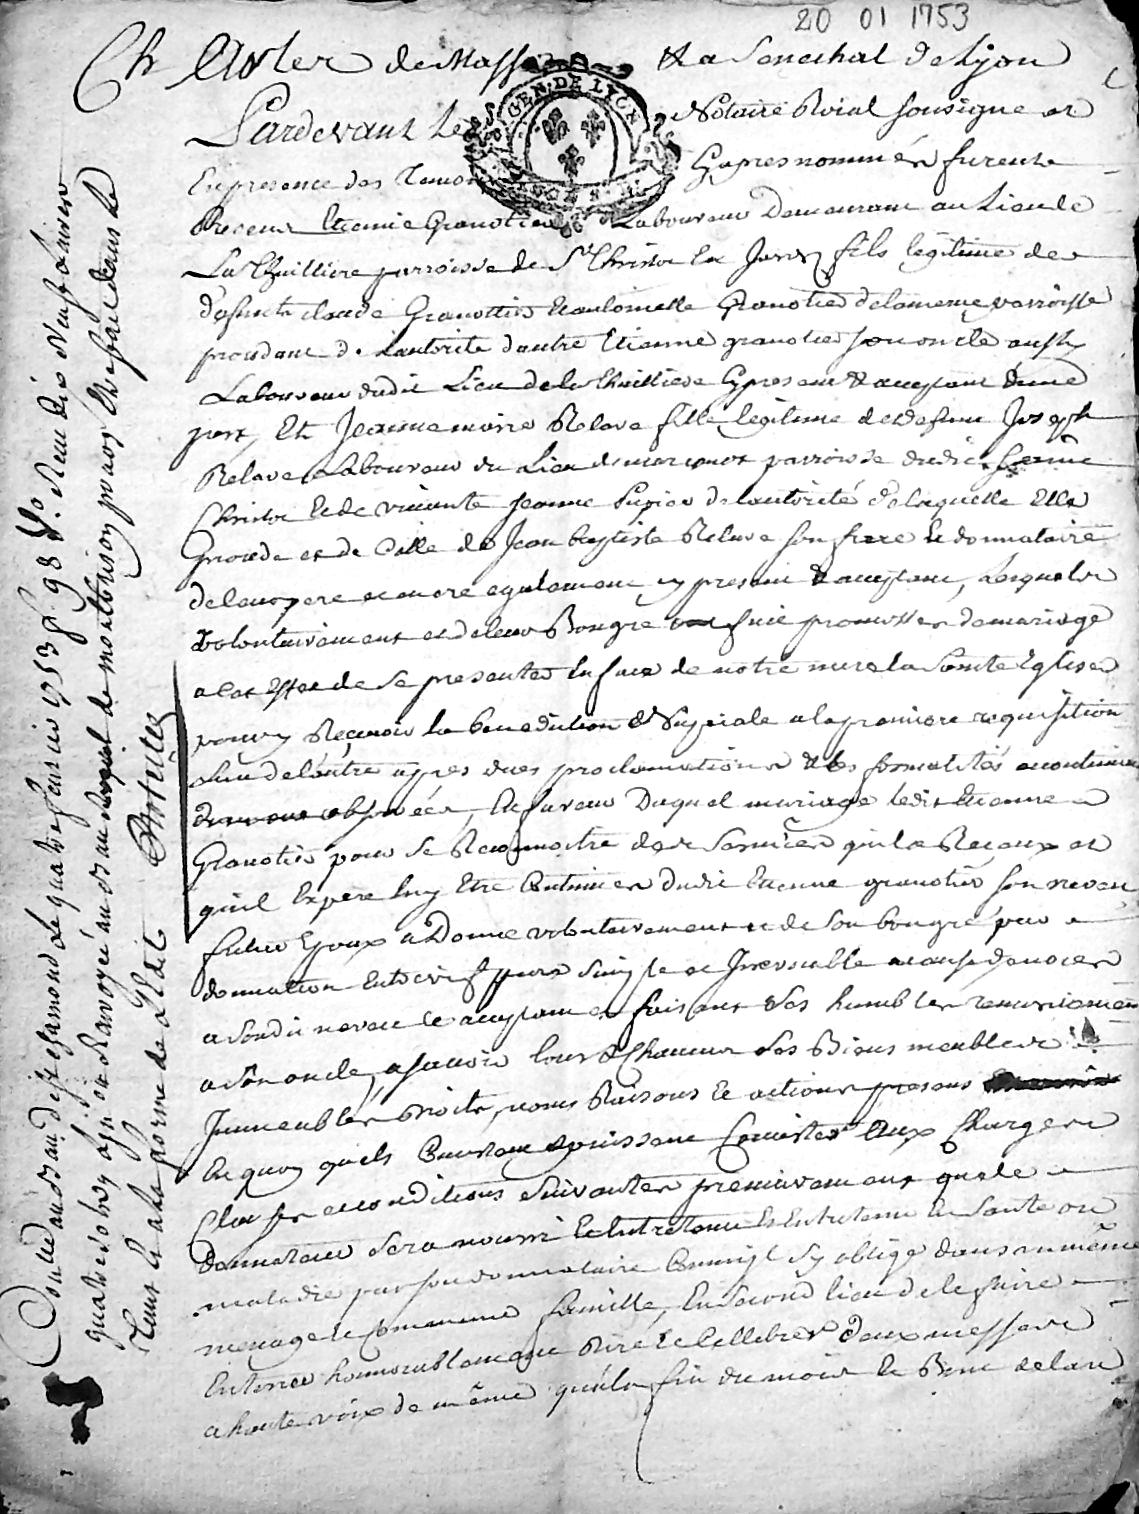 20 01 1753
de Masso & a Senechal de Lyon
GEN. DE LYON
Pardevant Le Notaire Roial sousigne et
En presence des Temoins Cy apres nommés furent
Presens Etienne Granotier Laboureur Demeurant au Lieu de
La Thuilliere parroisse de St Christo La fils legitime de
defunts claude Granottier & antoinette Granotier de la meme parroisse
procedant de Lautorité dautre Etienne granotier son oncle aussy
Laboureur dudit Lieu de la Thuilliere Cy present & acceptant dune
part, Et Jeanne marie Relave fille legitime de defunt Joseph
Relave Laboureur du Lieu de parroisse dudit
Christo & de vivante Jeanne de lautorité de laquelle Elle
procede et de Celle de Jean baptiste Relave son frere & donnataire
de leur pere encore egalement cy present & acceptant, Lesquels
volontairement et de leur Bongré ont fait promesses de mariage
a cet Effet de se presenter En face de notre mere la Sainte Eglise
pour y Reçevoir la benediction Nuptiale a la premiere requisition
Lun de lautre apres dues proclamations & les formalités accoutumées
observées, En faveur Duquel mariage ledit Etienne
Granotier pour se Reconnoitre des services quil a Reçeux et
quil Expere luy Etre Continués dudit Etienne granotier son neveu
futur Epoux a Donné volontairement & de son bongré par
donnation Entre vifs pure simple et Irrevocable a cause de noces
a sondit neveu Ce acceptant en faisant ses humbles remerciemens
a son oncle, asavoir tous & Chacuns ses Biens meubles
Immeubles Droits, noms Raisons & actions presens
En quoy quils Consistent & puissent Consister Aux Charges
Clauses & conditions Suivantes premierement que le
Donnateur sera nourri & Entretenu En Santé ou
maladie par son donnataire Comme il sy oblige dans un même
menage & Commune famille, En Second lieu de le faire
Enterrer honnorablement Dire & Cellebrer deux messes
a haute voix de même qu'a la fin du mois & Bout de lan
Controllé au de St chamond le quatre fevrier 1753 fo. 98 Vo. Reçu dix Neuf Livres
quatre sols, & Renvoyé au de montbrison pour y Etre dans le
Tems & a la forme de LEdit